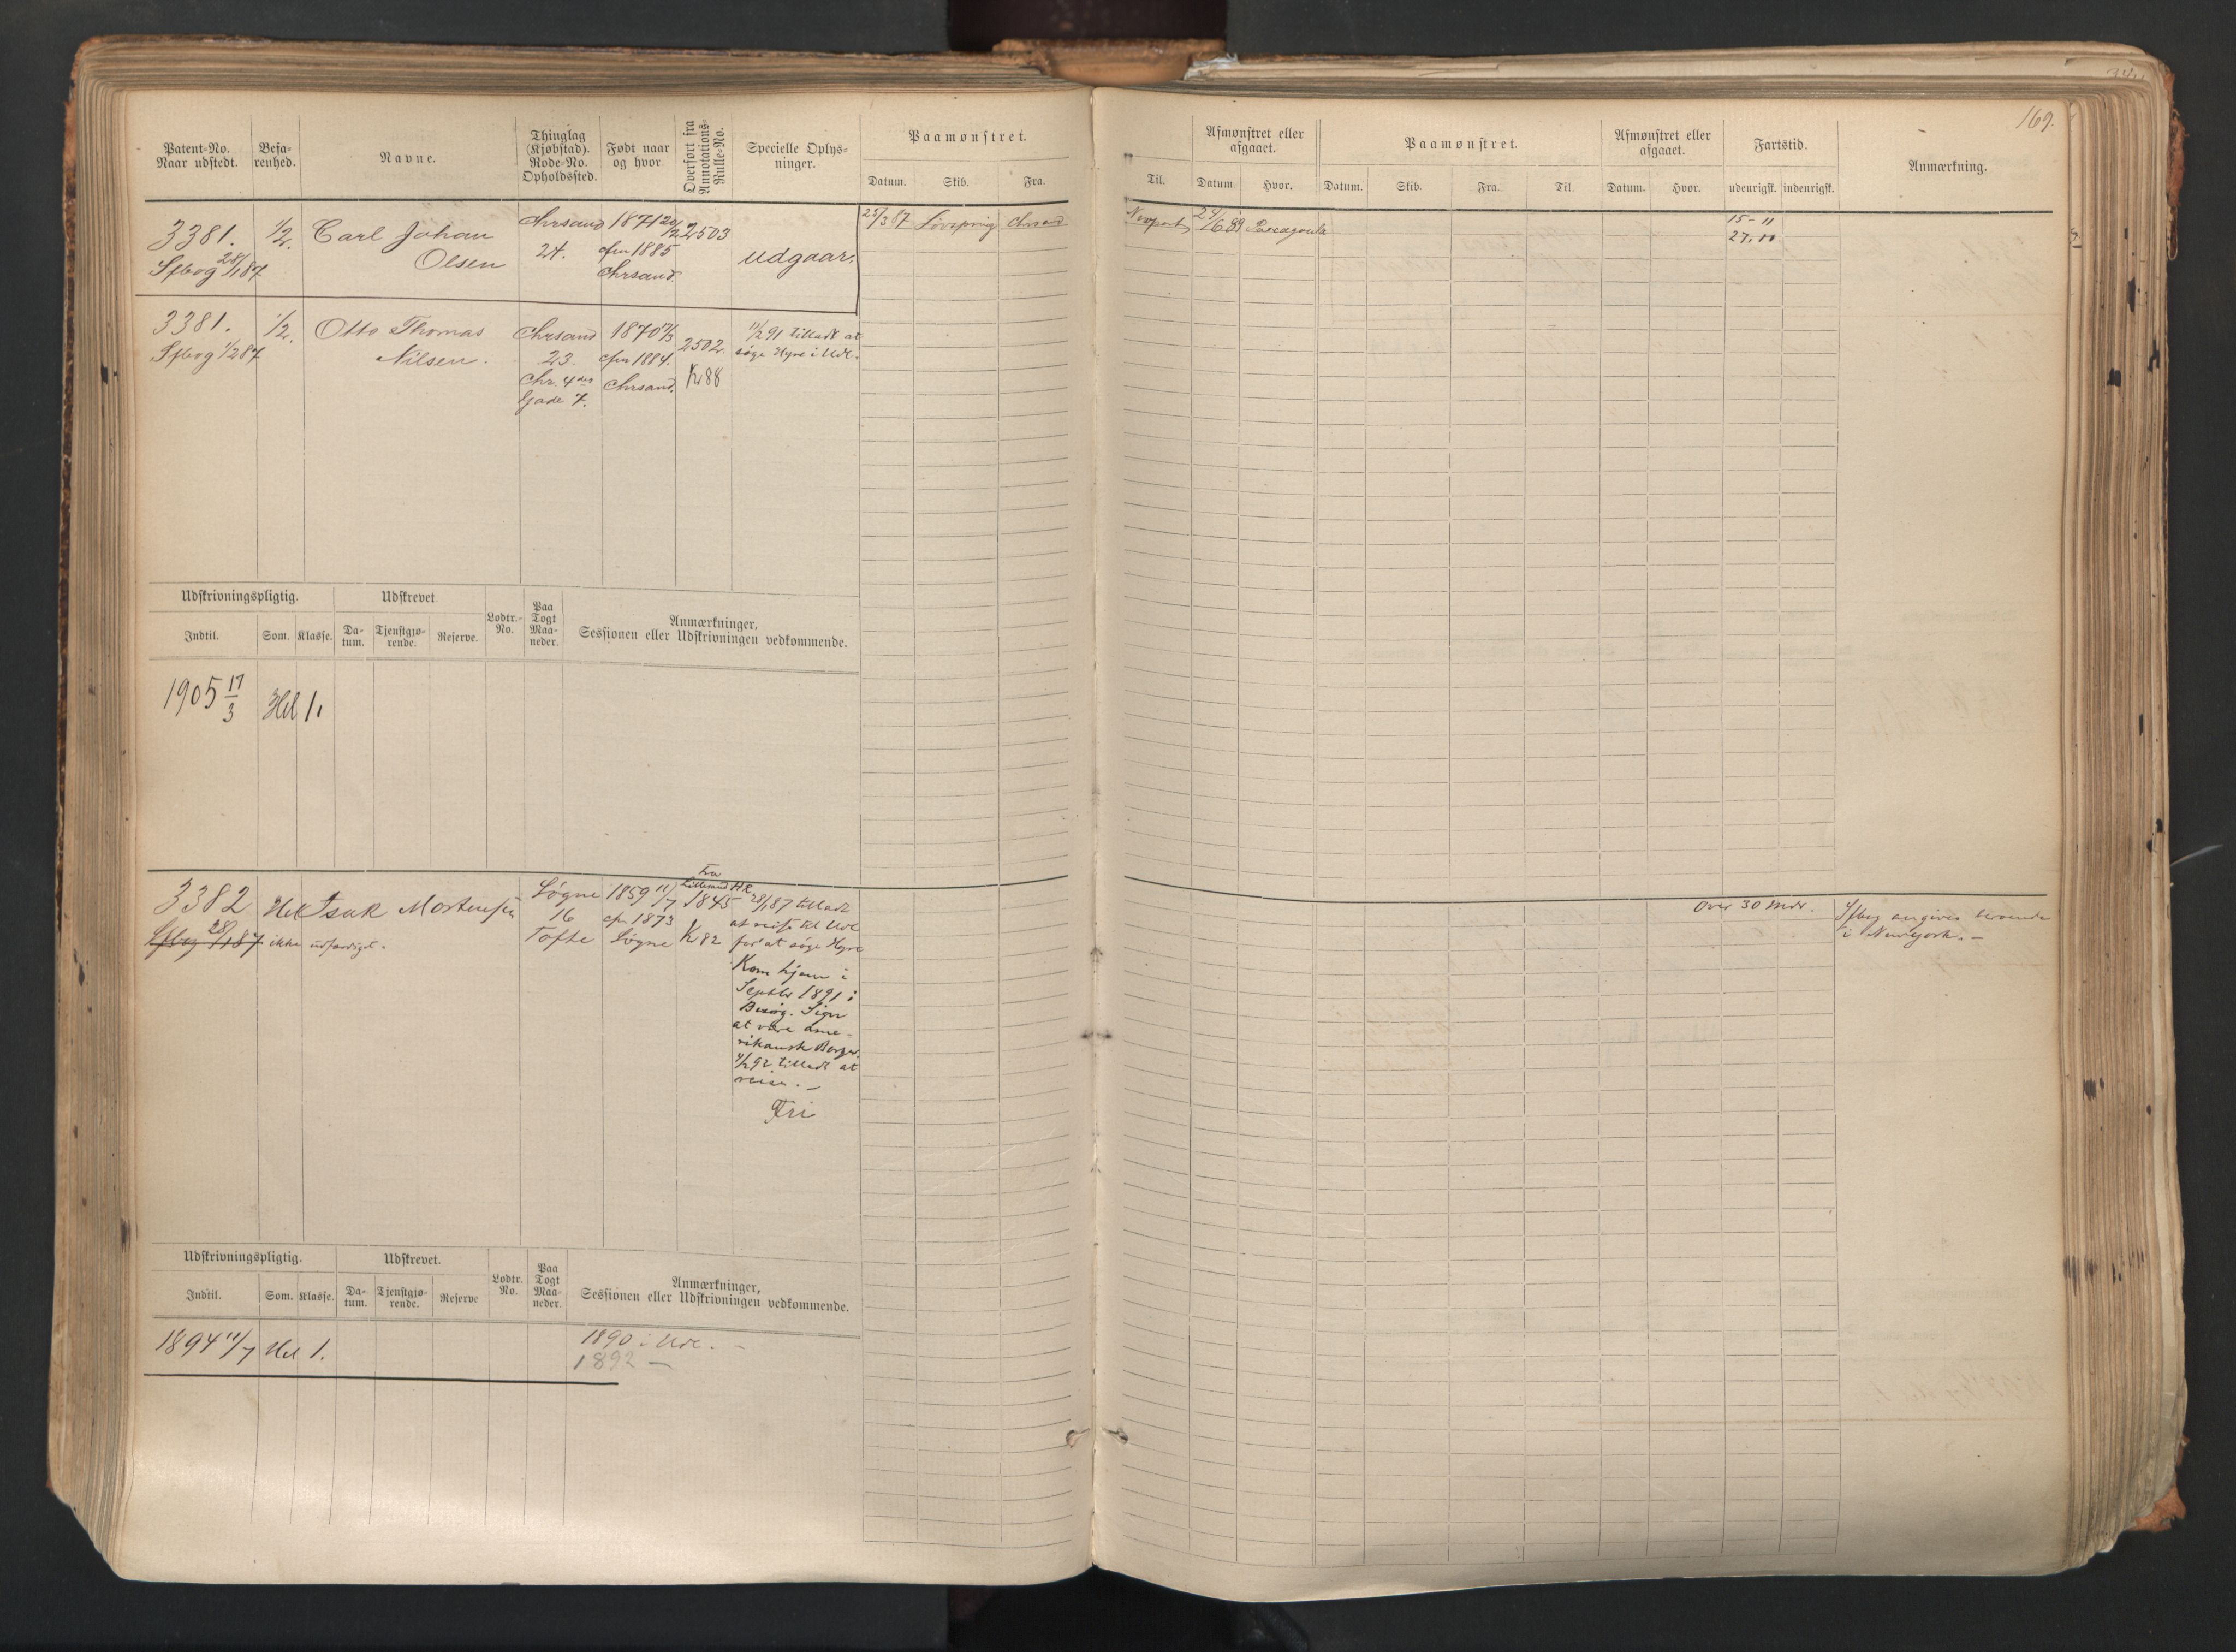 169.
Patent-No.
Naar udstedt.
Befa-
renhed.
Navne.
Thinglag
(Kjøbstad).
Rode-No.
Opholdssted.
Født naar
og hvor
Overført fra
Annotations-
Rulle-No.
Specielle Oplys-
ninger.
Paamønstret.
Datum. Skib. Fra.
Til.
Afmønstret eller
afgaaet.
Datum Hvor.
Paamønstret.
Datum. Skib. Fra. Til.
Afmønstret eller
afgaaet.
Datum. Hvor.
Fartstid.
udenrigsk. indenrigsk.
Anmærkning.
3381.
Sfbog 28/1 87
1/2
Carl Johan
Olsen
Chrsand
24.
1871 20/2
cfm 1885
Chrsand.
2503
udgaar.
25/3 87 Chrsand
Newport 24/6 89
15-11
27.11
3381.
Sfbog 1/2 87
1/2
Otto Thomas
Nilsen.
Chrsand
23.
Chr. 4des
Gade 7.
1870 17/3
cfm 1884.
Chrsand.
2502
K 88
11/2 91 tilladt at
søge Hyre i Udl.
Udskrivningspligtig.
Indtil. Som. Klasse.
Udskrevet
Da-
tum.
Tjenstgjø-
rende.
Reserve.
Lodtr.-
No.
Paa
Togt
Maa-
neder.
Anmærkninger,
Sessionen eller Udskrivningen vedkommende.
1905 17/3 Hel 1.
3382
Sfbog 28/1 87 ikke udfærdiget.
Hel
Isak Mortensen
Søgne
16
Tofte
1859 11/7
cfm 1873
Søgne
fra
Lillesand HR
1845
K 82
28/1 87 tilladt
at reise til Udl
for at søge Hyre
Kom hjem i
Septbr 1891 i
Besøg. Siger
at være ame-
rikansk Borger.
4/2 92 tilladt at
reise. -
Fri
Over 30 Mdr.
Sfbog angives beroende
i Newyork. -
Udskrivningspligtig.
Indtil. Som. Klasse.
Udskrevet.
Da-
tum.
Tjenstgjø-
rende.
Reserve
Lodtr.
No.
Paa
Togt
Maa-
neder.
Anmærkninger,
Sessionen eller Udskrivningen vedkommende.
1894 11/7 Hel 1.
1890 i Udl. -
1892 -